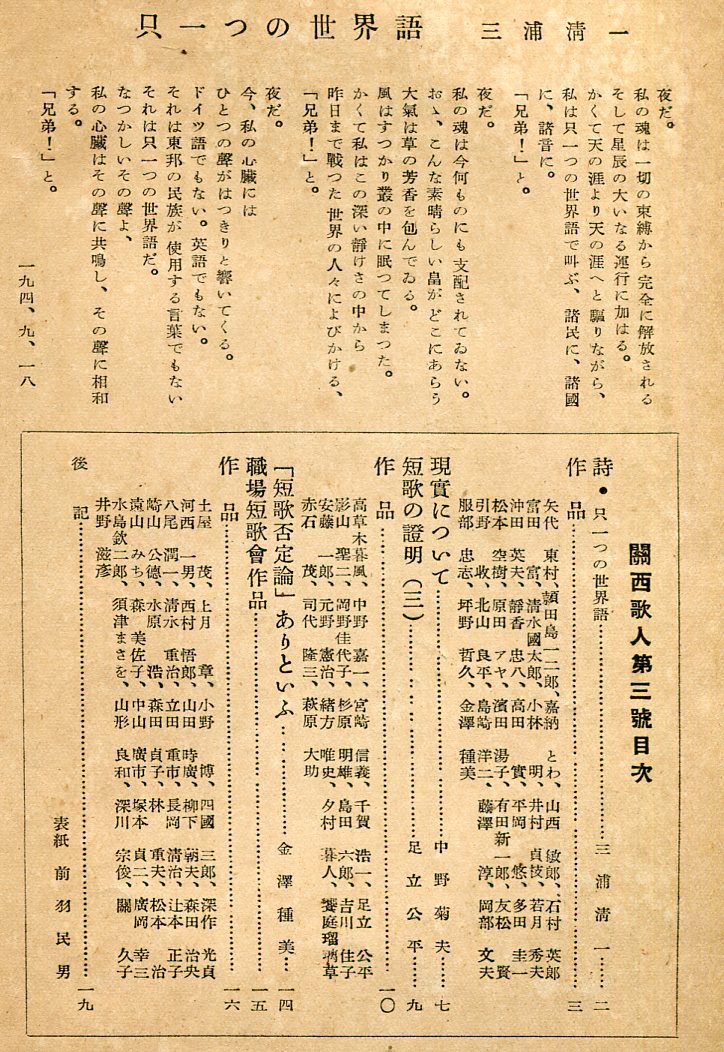 只一つの世界語　三浦清一
夜だ。
私の魂は一切の束縛から完全に解放される
そして星辰の大いなる運行に加はる。
かくて天の涯より天の涯へと驅りながら、
私は只一つの世界語で叫ぶ、諸民に、諸國
に、諸音に。
「兄弟！」と。
夜だ。
私の魂は今何ものにも支配されてゐない。
おゝ、こんな素晴らしい畠がどこにあらう
大氣は草の芳香を包んでゐる。
風はすつかり叢の中に眠つてしまつた。
かくて私はこの深い靜けさの中から
昨日まで戰つた世界の人々によびかける、
「兄弟！」と。
夜だ。
今、私の心臟には
ひとつの聲がはつきりと響いてくる。
ドイツ語でもない。英語でもない。
それは東邦の民族が使用する言葉でもない
それは只一つの世界語だ。
なつかしいその聲よ、
私の心臟はその聲に共鳴し、その聲に相和
する。
「兄弟！」と。
一九四、九、一八
關西歌人第三號目次
詩・只一つの世界語……三浦清一……二
作品……三
矢代　東村、頴田島一二郎、嘉納　とわ、山西　敏郎、石村　英郎
富田　富、清水國太郎、小林　明、井村　貞枝、若月　秀夫
沖田　英夫、靜香　忠八、高田　實、平岡　悠、多田　圭一
松本　空樹、原田　アヤ、濱田　湯子、有田新一郎、友松　賢
引野　收、北山　良平、島崎　洋二、藤澤　淳、岡部　文夫
服部　忠志、坪野　哲久、金澤　種美
現實について……中野菊夫……七
短歌の證明（三）……足立公平……九
作品……一〇
高草木暮風、中野　嘉一、宮崎　信義、千賀　浩一、足立　公平
影山　聖二、岡野佳代子、杉原　明雄、島田　六郎、吉川　佳子
安藤　一郎、元野　憲治、緒方　唯史、夕村　暮人、饗庭瑠璃草
赤石　茂、司代　隆三、萩原　大助
「短歌否定論」ありといふ……金澤種美……一四
職場短歌會作品……一五
作品……一六
土屋　茂、上月　章、小野　博、四國　三郎、深作　光貞
河西　一男、西村　悟郎、山田　時廣、柳下　朝夫、森田　治央
八尾　潤一、清水　重治、立田　重市、長岡　清治、辻本　正子
崎山　公德、水原　浩、森田　貞子、林　重夫、松本　治
遠山　みち、森　美佐子、中山　廣市、塚本　貞二、廣岡　幸三
水島欽二郎、須津まさを、山形　良和、深川　宗俊、關　久子
井野　滋彦
後記……一九
表紙　前羽民男